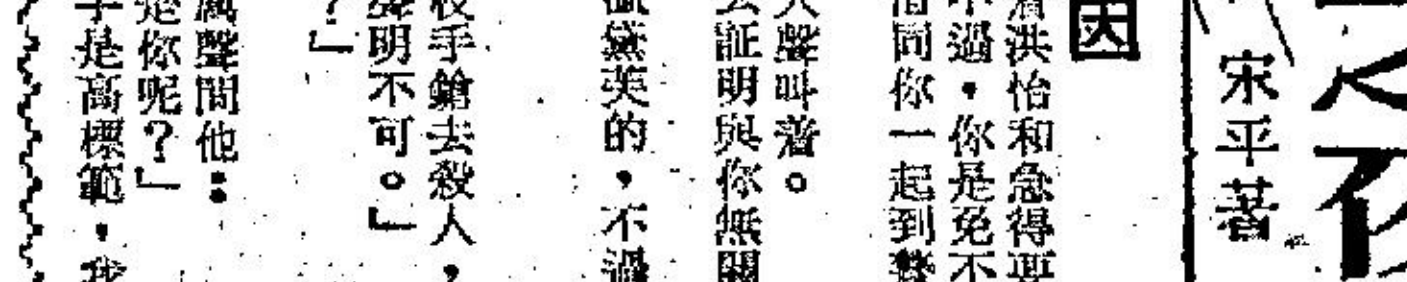 宋平著
因
洪怡和急得
不過，你是免不
同你一起到
人聲叫着。
去証明與你無關
黛英的，不過
手鎗去殺人，
聲明不可。」
？」
厲聲問他：
是你呢？」
子是高標範，我